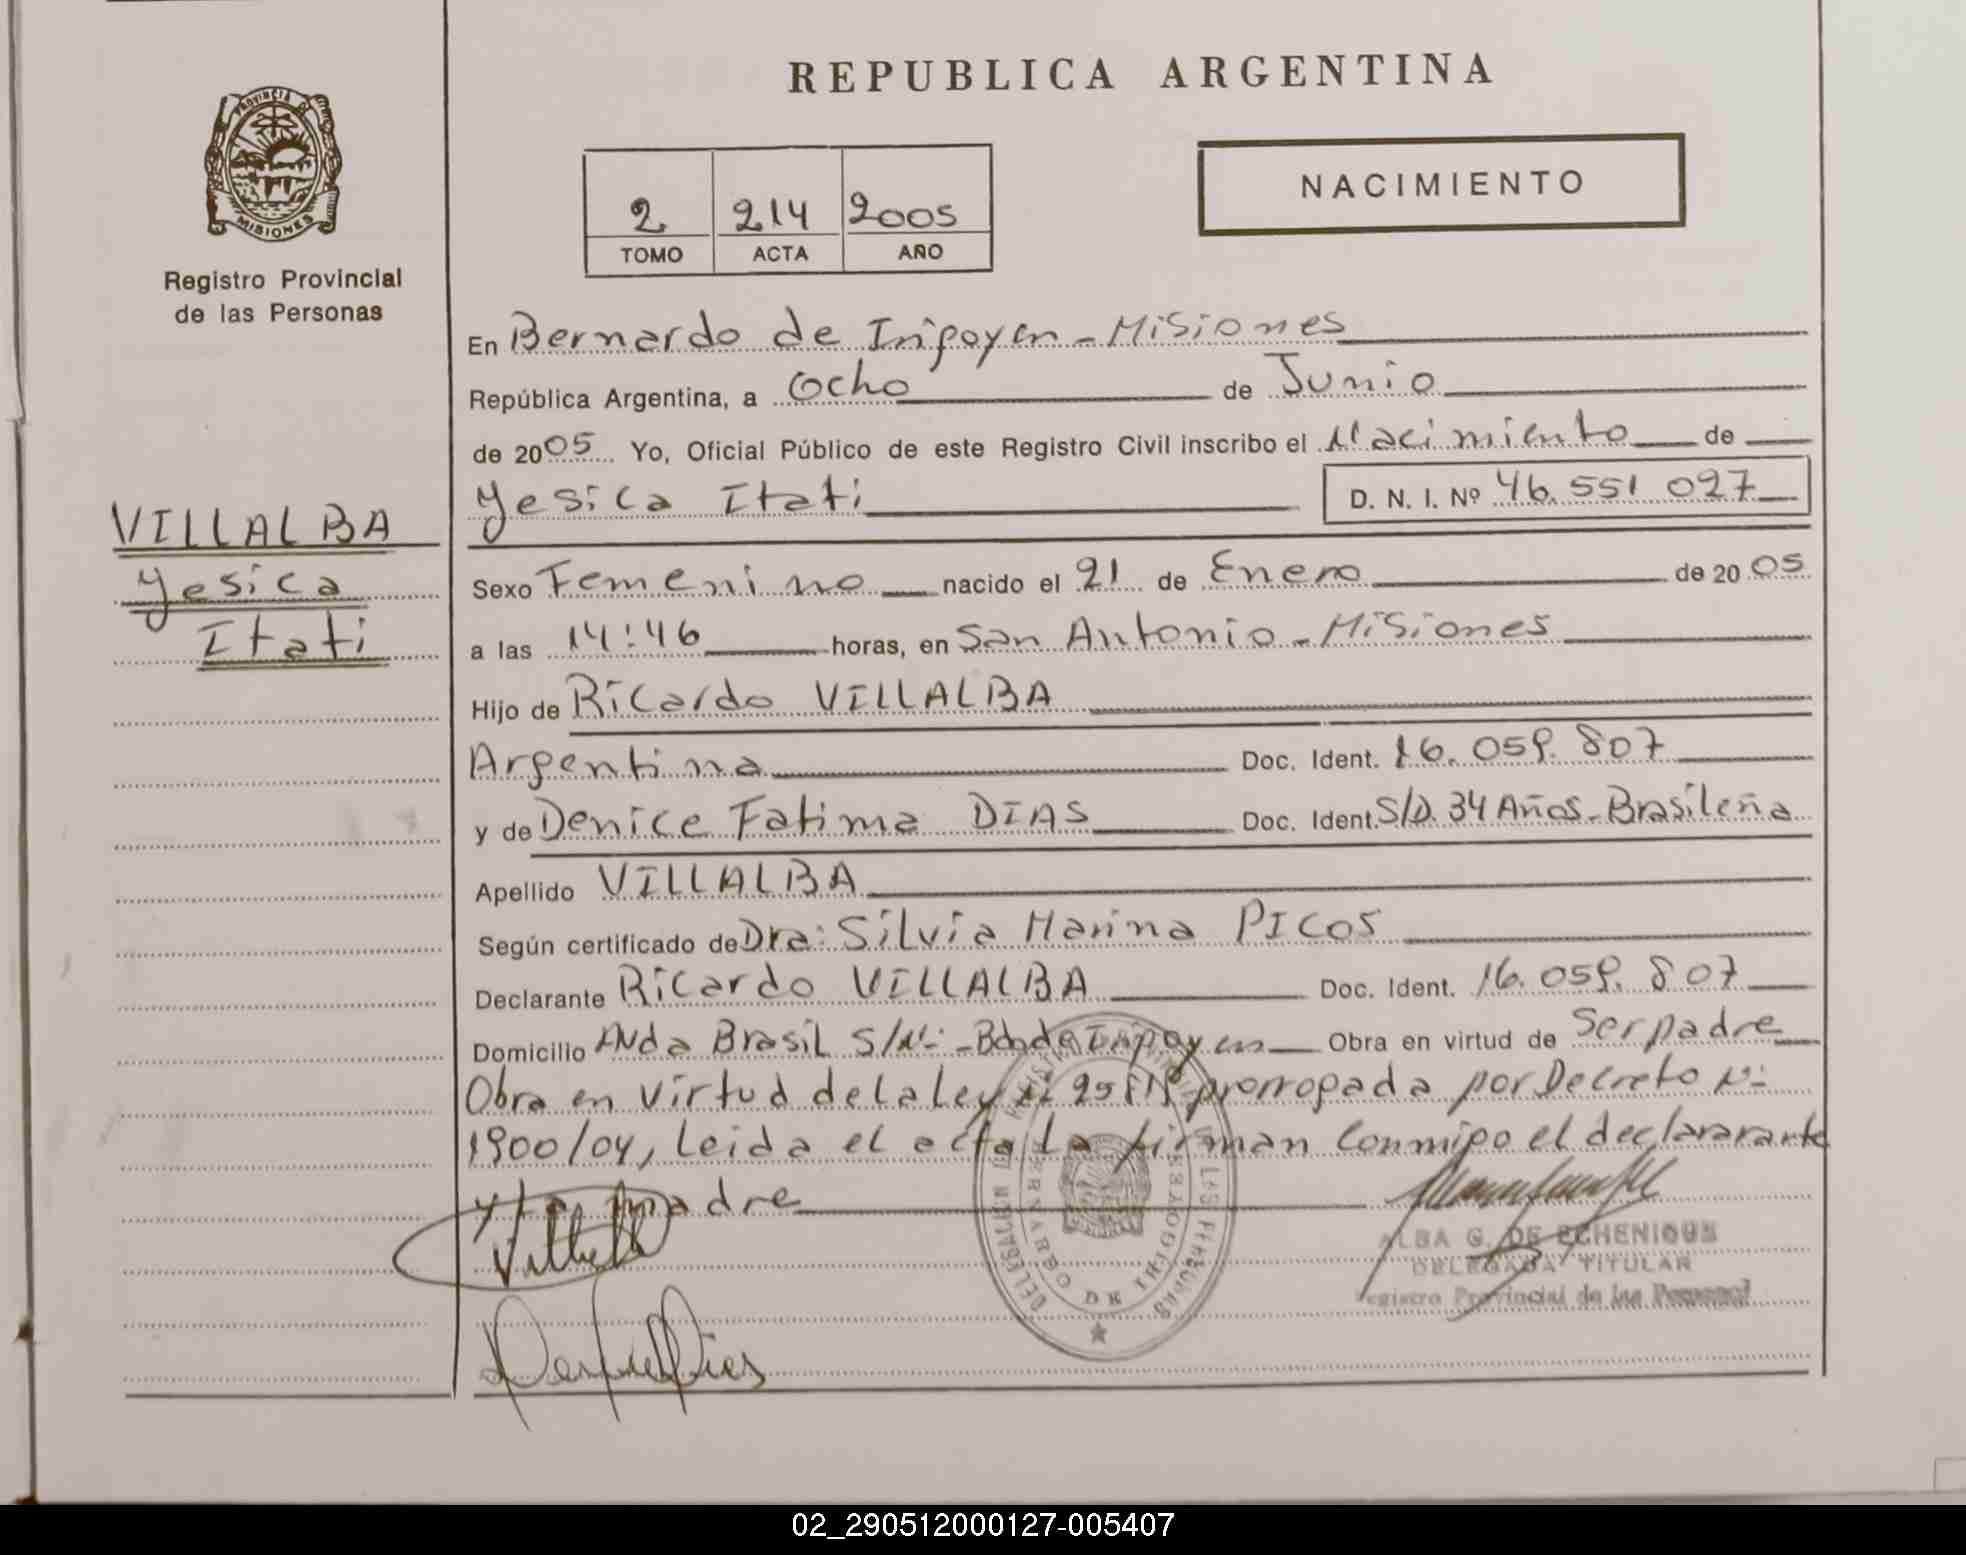 REPUBLICA ARGENTINA
PROVINCIA DE
MISIONES
Registro Provincial
de las Personas
2 214 2005
TOMO ACTA AÑO
NACIMIENTO
En Bernardo de Irigoyen - Misiones
República Argentina, a Ocho de Junio
de 2005 Yo, Oficial Público de este Registro Civil inscribo el Nacimiento de
Yesica Itati D. N. I. Nº 46.551.027
VILLALBA
Yesica
Itati
Sexo Femenino nacido el 21 de Enero de 2005
a las 14:46 horas, en San Antonio - Misiones
Hijo de Ricardo VILLALBA
Argentina Doc. Ident. 16.059.807
y de Denice Fatima DIAS Doc. Ident. S/D. 34 Años - Brasileña
Apellido VILLALBA
Según certificado de Dra: Silvia Marina PICOS
Declarante Ricardo VILLALBA Doc. Ident. 16.059.807
Domicilio Avda Brasil S/Nº - Bdo de Irigoyen Obra en virtud de Ser padre
Obra en virtud de la ley prorrogada por Decreto Nº
1900/04, leida el acta la firman conmigo el declararante
y la madre
Villalba
DELEGACION
BERNARDO DE IRIGOYEN
ALBA G. DE ECHENIQUE
DELEGADA TITULAR
Registro Provincial de las Personas
02_290512000127-005407